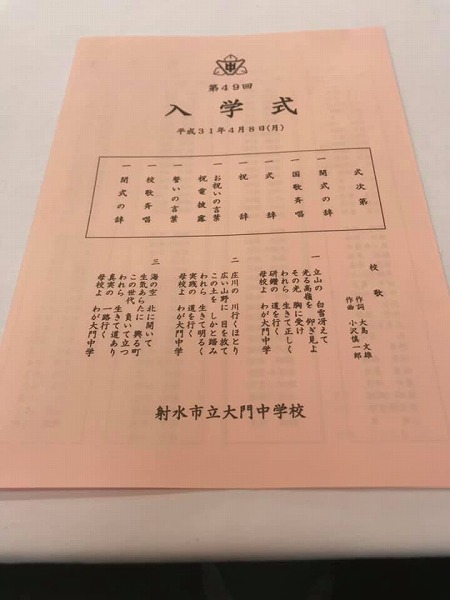 中
第49回
入学式
平成31年4月8日(月)
式次第
一 開式の辞
一 国歌斉唱
一 式辞
一 祝辞
一 お祝いの言葉
祝電披露
一 誓いの言葉
一 校歌斉唱
一 閉式の辞
校歌
作詞 大島 文雄
作曲 小沢慎一郎
一 立山の 白雪冴えて
光る高嶺を 仰ぎ見よ
その光 胸に受け
われら 生きて正しく
研鑽の 道を行く
母校よ わが大門中学
二 庄川の 川行くほとり
広い山野に 日を放て
この土を しかと踏み
われら 生きて明るく
実践の 道を行く
母校よ わが大門中学
三 海の空 北に開いて
生気あらたに 興る町
この世代 負いて立つ
われら 生きて道あり
真実の 一路行く
母校よ わが大門中学
射水市立大門中学校